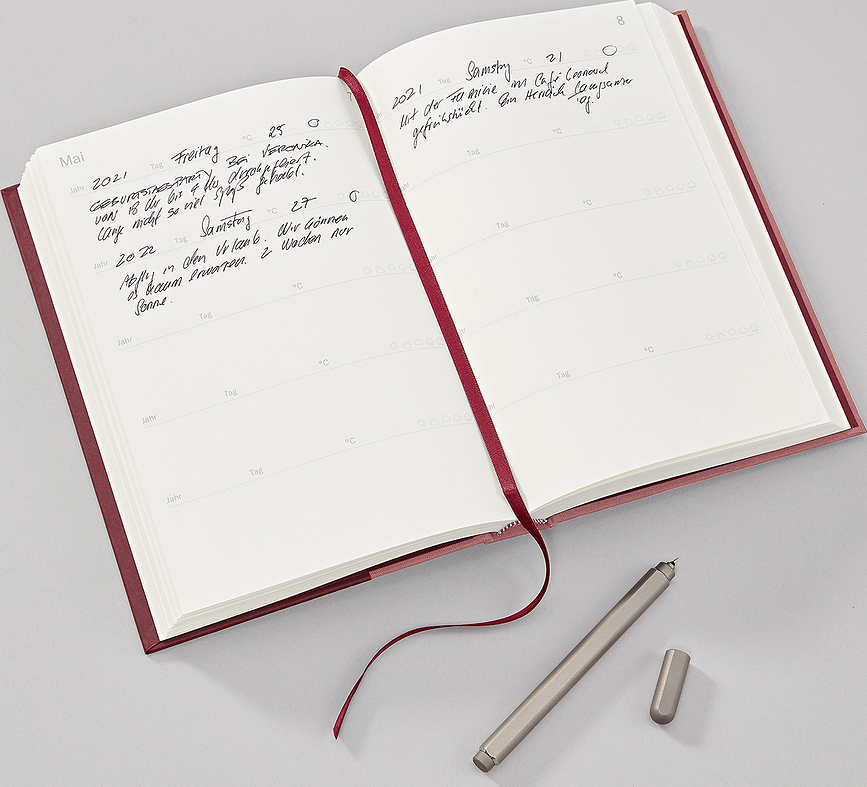 Mai
Jahr 2021 Tag Freitag °C 25
GEBURTSTAGSPARTY BEI VERONIKA.
von 18 Uhr bis 4 Uhr durchgefeiert.
Lange nicht so viel Spaß gehabt.
Jahr 2022 Tag Samstag °C 27
Abflug in den Urlaub. Wir können
es kaum erwarten. 2 Wochen nur
Sonne.
Jahr Tag °C
Jahr Tag °C
Jahr Tag °C
8
2021 Tag Samstag °C 21
Mit der Familie im Café Leonard
gefrühstückt. Ein Herrlich
Tag.
Tag °C
Tag °C
Tag °C
Tag °C